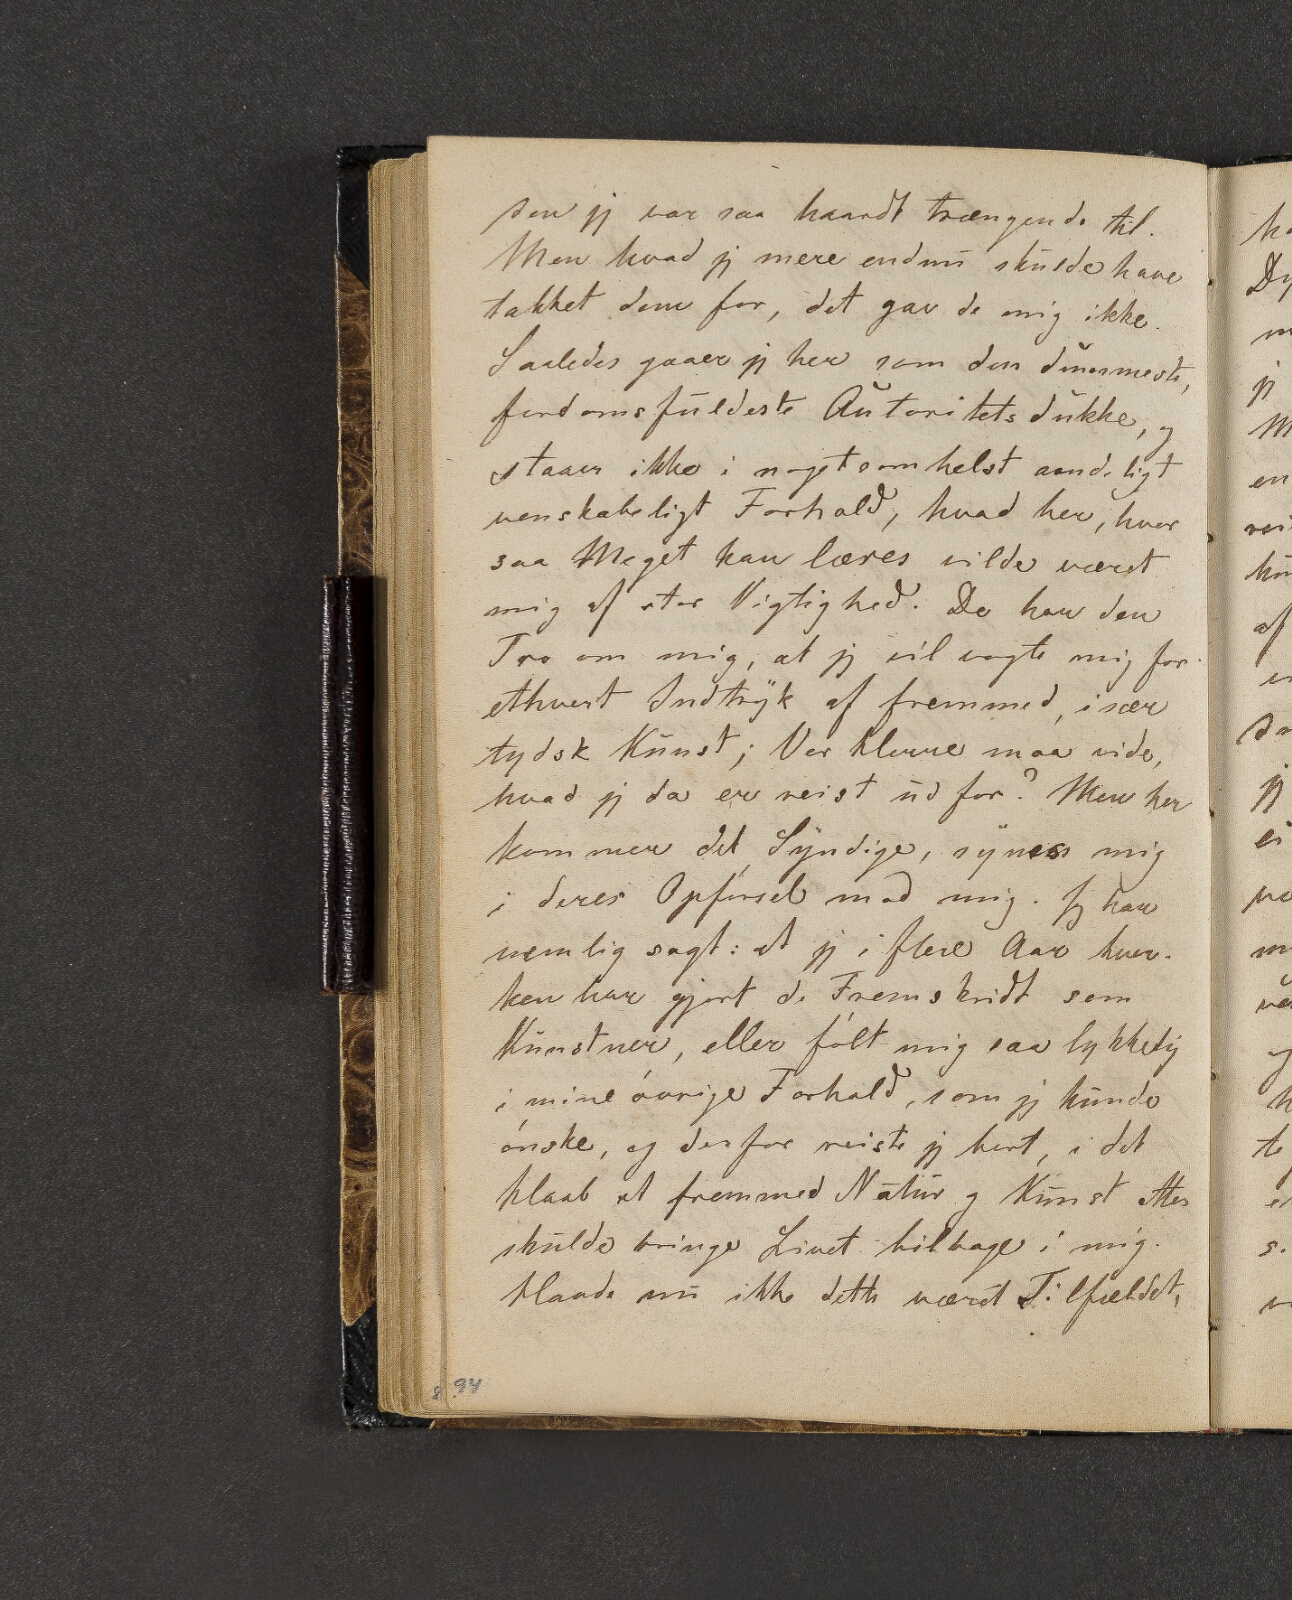 som jeg var saa haardt trængende til.
Men hvad jeg mere endnu skulde have
takket dem for, det gav de mig ikke.
Saaledes gaaer jeg her som den dummeste,
fordomsfuldeste Autoritetsdukke, og
staaer ikke i nogetsomhelst aandeligt
venskabeligt Forhold, hvad her, hvor
saa Meget kan læres vilde været
mig af stor Vigtighed. De har den
Tro om mig, at jeg vil vogte mig for
ethvert Indtryk af fremmed, især
tydsk Kunst; Vor Herre maa vide,
hvad jeg da er reist ud for? Men her
kommer det Syndige, synes mig
i deres Opførsel mod mig. Jeg har
nemlig sagt: at jeg i flere Aar hver-
ken har gjort de Fremskridt som
Kunstner, eller følt mig saa lykkelig
i mine øvrige Forhold, som jeg kunde
ønske, og derfor reiste jeg bort, i det
Haab at fremmed Natur og Kunst atter
skulde bringe Livet tilbage i mig.
Havde nu ikke dette været Tilfældet,
94
ha
Dy
m
jeg
M
en
af
jeg
ei
m
og
h
te
s.